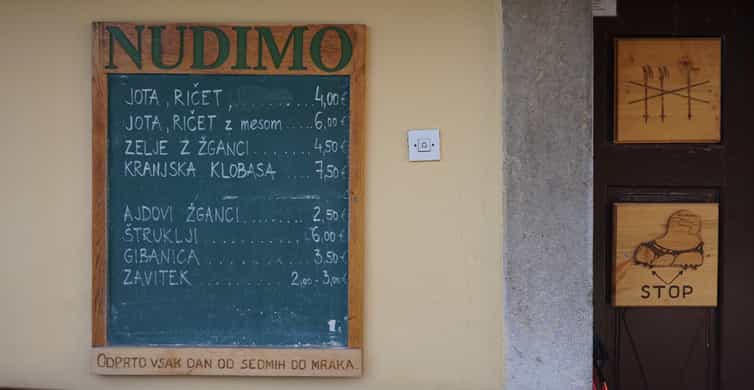 NUDIMO
JOTA, RIČET, ......... 4,00€
JOTA, RIČET z mesom ..... 6,00€
ZELJE Z ŽGANCI ....... 4,50€
KRANJSKA KLOBASA .... 7,50€
AJDOVI ŽGANCI ......... 2,50€
ŠTRUKLJI ............ 6,00€
GIBANICA ............ 3,50€
ZAVITEK ............ 2,00-3,00€
ODPRTO VSAK DAN OD SEDMIH DO MRAKA.
STOP